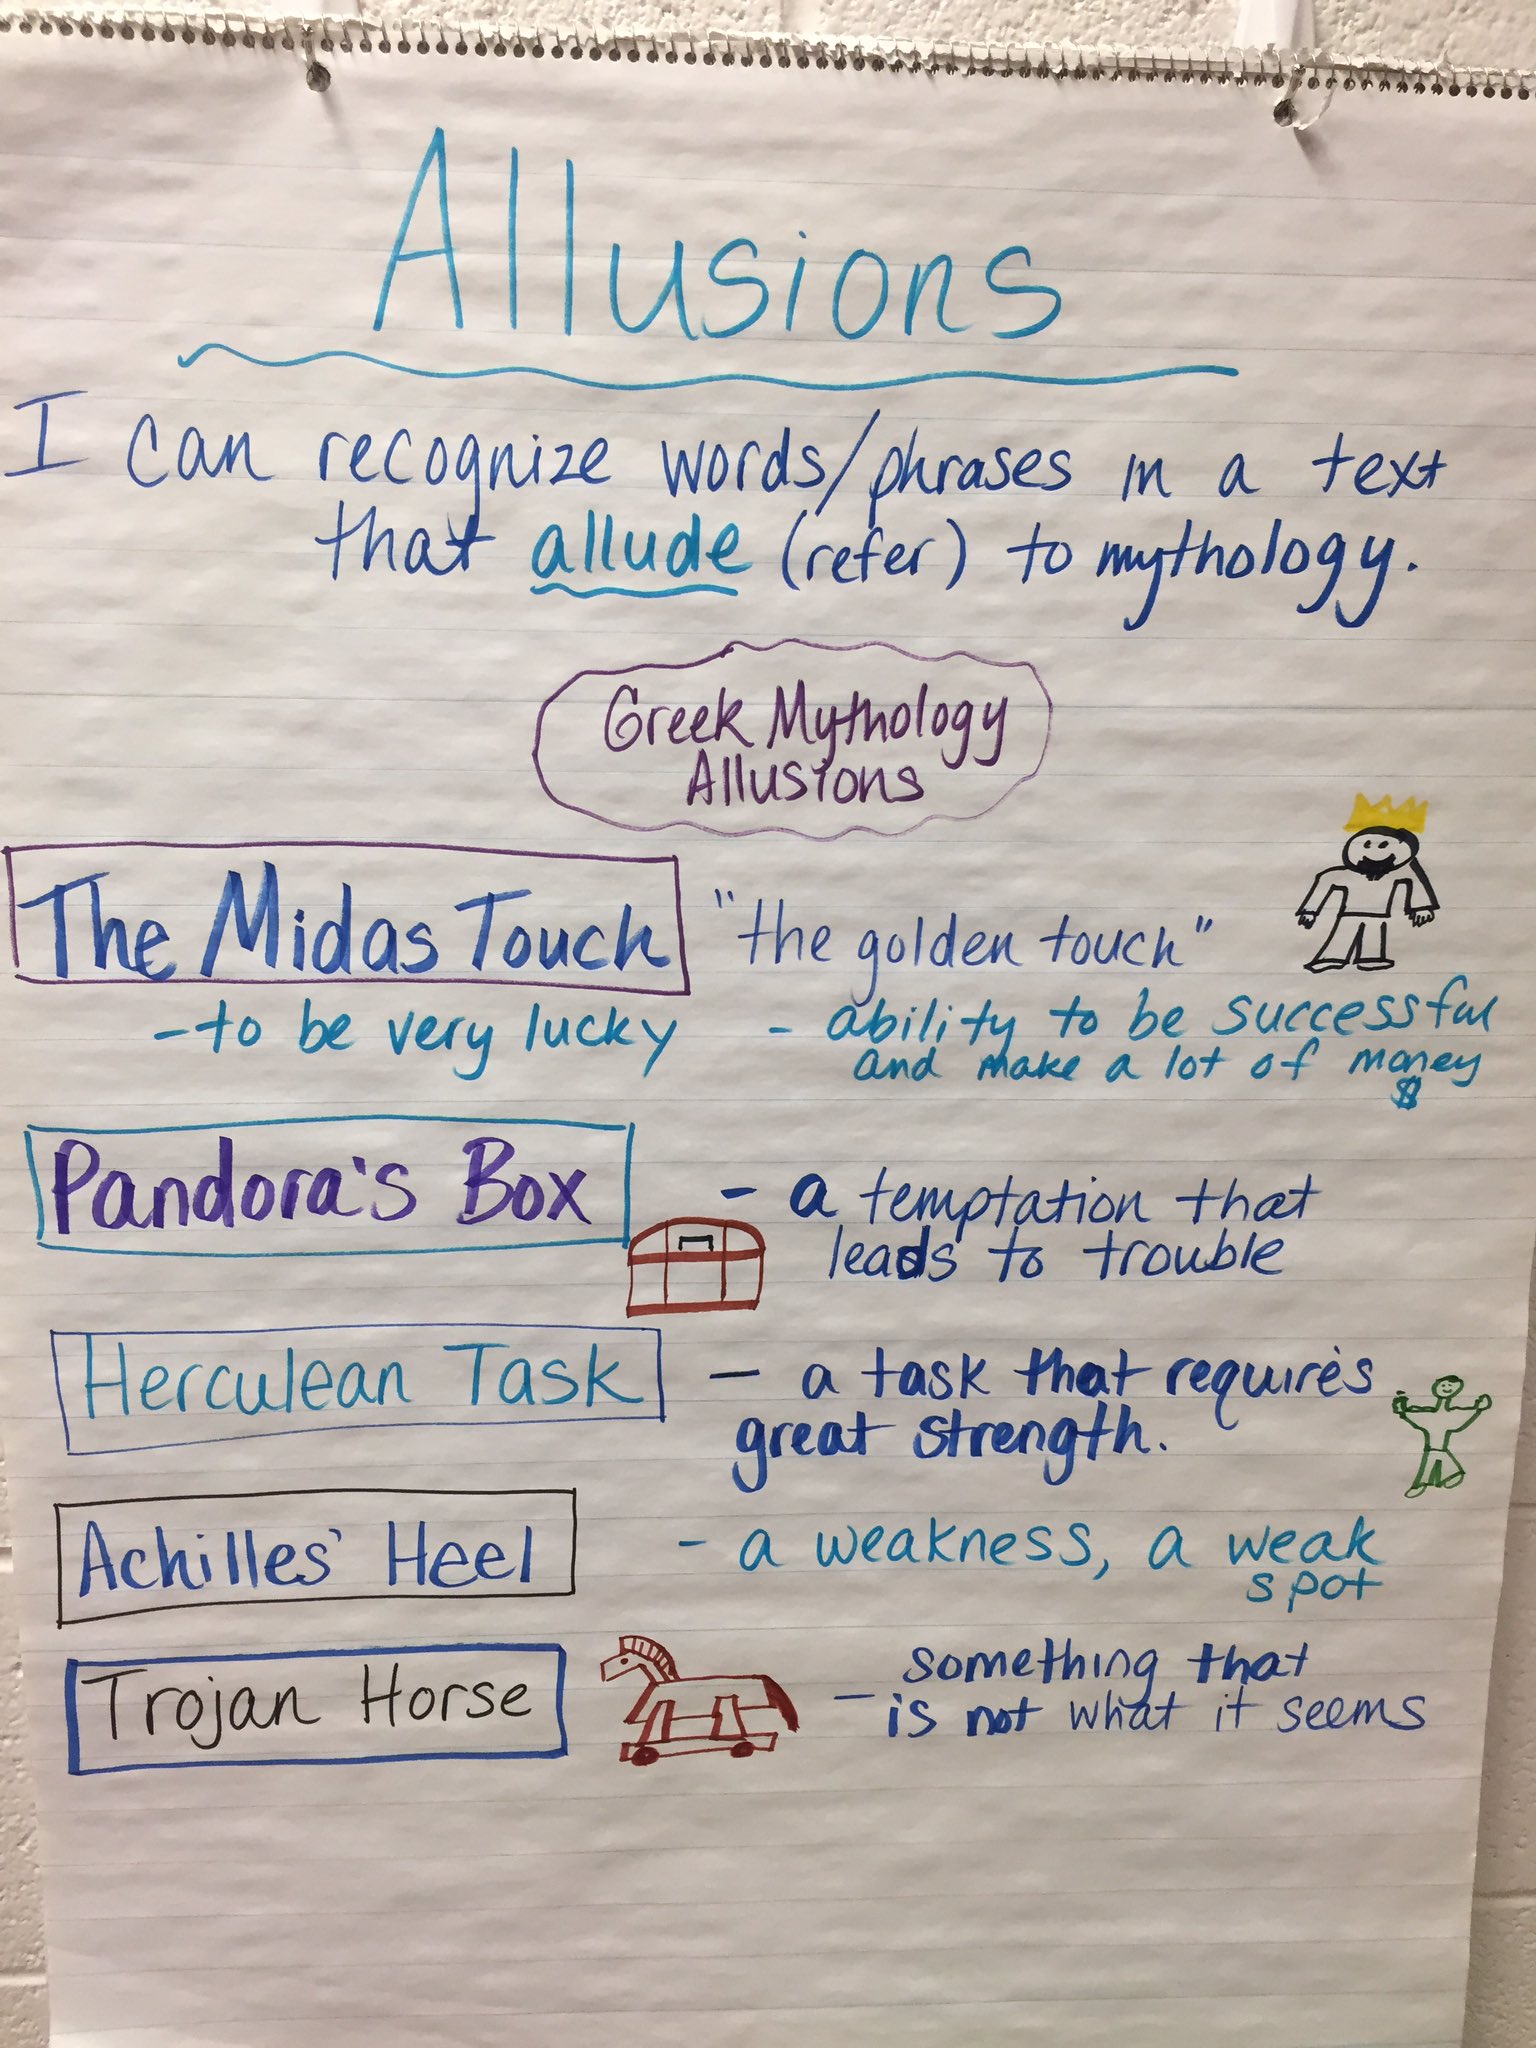 Allusions
I can recognize words/phrases in a text
that allude (refer) to mythology.
Greek Mythology
Allusions
The Midas Touch "the golden touch"
- to be very lucky - ability to be successful
and make a lot of money
$
Pandora's Box - a temptation that
leads to trouble
Herculean Task - a task that requires
great strength.
Achilles' Heel - a weakness, a weak
spot
Trojan Horse - something that
is not what it seems